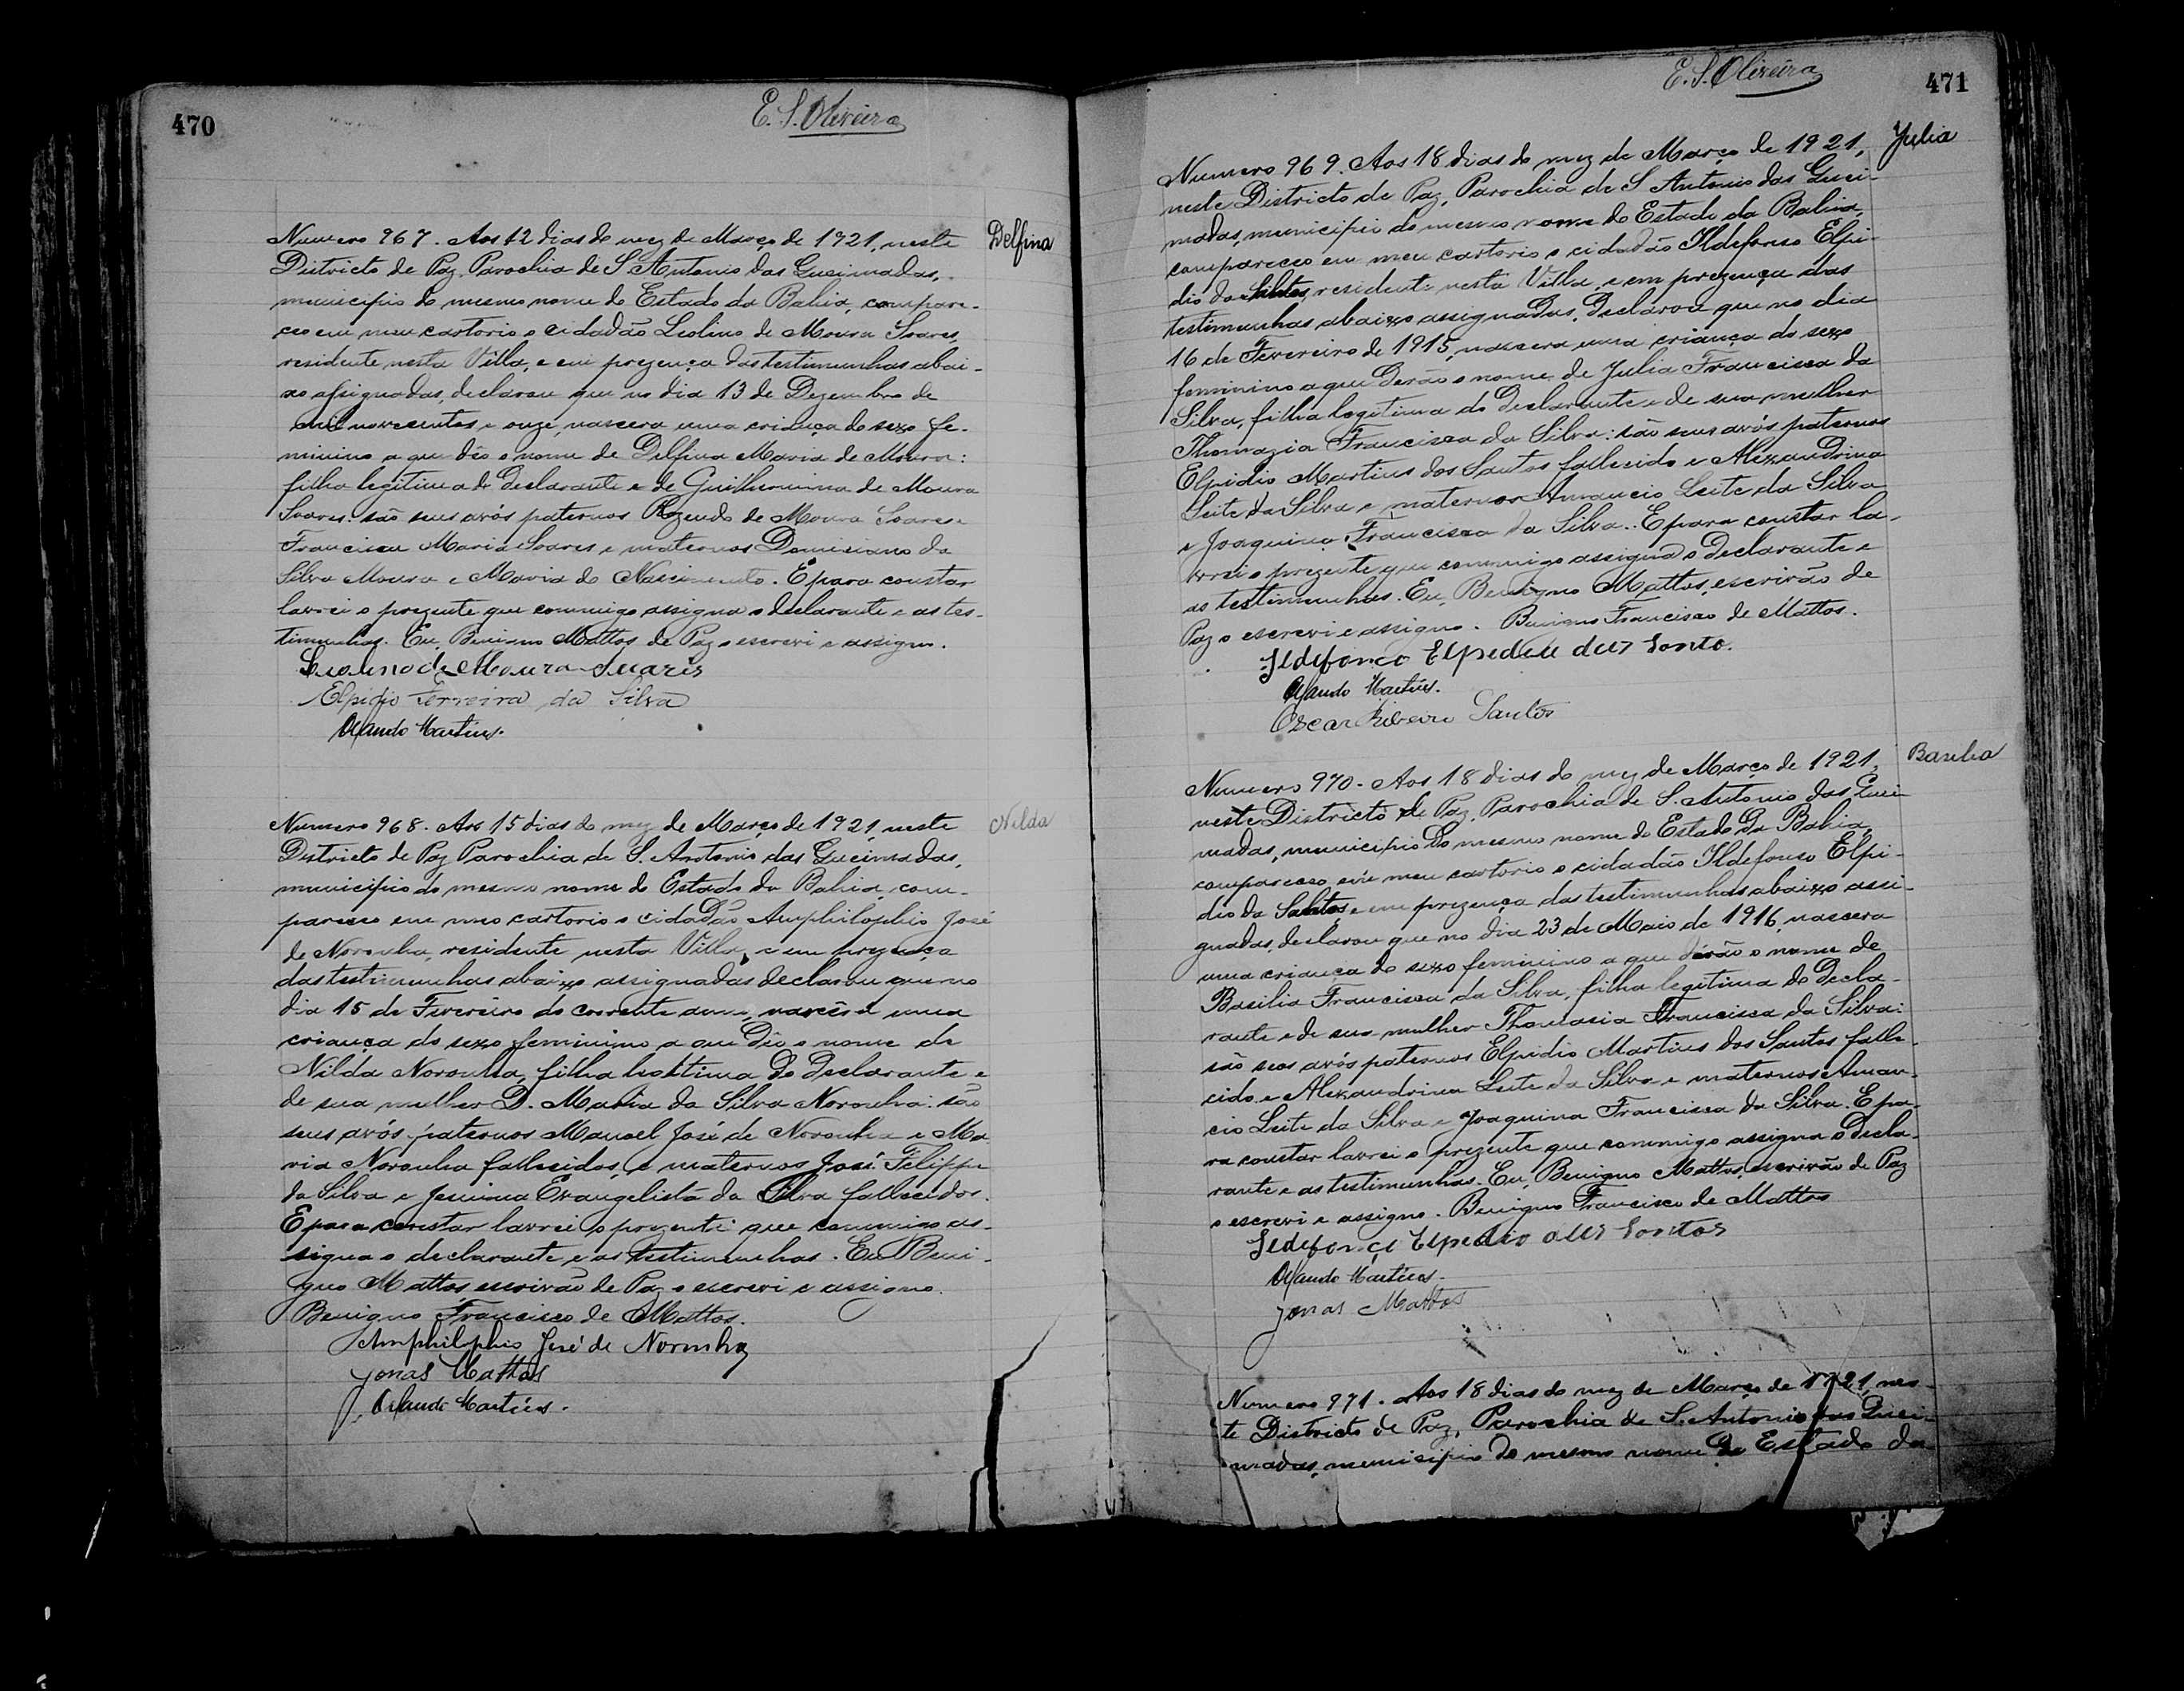 470
E. S. Oliveira
Numero 967. Aos 12 dias do mez de Março de 1921, neste
Delfina
Districto de Paz, Parochia de S Antonio das Queimadas,
municipio do mesmo nome do Estado da Bahia, compare-
ceo em meu cartorio o cidadão Liolino de Moura Soares,
residente nesta Villa, e em prezença das testimunhas abai-
xo assignadas, declarou que no dia 13 de Dezembro de
mil novecentos e onze, nascera uma criança do sexo fe-
minino a que dão o nome de Delfina Maria de Moura:
filha legitima do declarante e de Guilhermina de Moura
Soares: são seus avós paternos Rozendo de Moura Soares e
Francisca Maria Soares e maternos Domiciano da
Silva Moura e Maria do Nascimento. E para constar
lavrei o prezente que commigo assigna o declarante e as tes-
timunhas. Eu, Benigno Mattos de Paz o escrevi e assigno.
de Moura Suares
Elpidio Ferreira da Silva
Orlando Martins.
Numero 968. Aos 15 dias do mez de Março de 1921, neste
Nilda
Districto de Paz Parochia de S. Antonio das Queimadas,
municipio do mesmo nome do Estado da Bahia, com-
pareceo em meo cartorio o cidadão Amphilophio José
de Noronha, residente nesta Villa, e em prezença
das testimunhas abaixo assignadas declarou que no
dia 15 de Fevereiro do corrente anno, nascêra uma
criança do sexo feminino a que dão o nome de
Nilda Noronha, filha legitima do declarante e
de sua mulher D. Maria da Silva Noronha: são
seus avós paternos Manoel José de Noronha e Ma
ria Noronha fallecidos, e maternos José Felippe
da Silva e Jesuina Evangelista da Silva fallecidos.
E para constar lavrei o prezente que commigo as-
signa o declarante e as testimunhas. Eu Beni-
gno Mattos, escrivão de Paz o escrevi e assigno.
Benigno Francisco de Mattos.
Amphilophio José de Noronha
Jonas Mattos
Orlando Martins.
E. S. Oliveira
471
Numero 969. Aos 18 dias do mez de Março de 1921,
Julia
neste Districto de Paz, Parochia de S Antonio das Quei-
madas, municipio do mesmo nome do Estado da Bahia,
compareceo em meu cartorio o cidadão Ildefonso Elpi-
dio da Santos, residente nesta Villa, e em prezença das
testimunhas abaixo assignadas, declarou que no dia
16 de Fevereiro de 1915, nascera uma criança do sexo
feminino a que derão o nome de Julia Francisca da
Silva, filha legitima do declarante e de sua mulher
Thomazia Francisca da Silva: são seus avós paternos
Elpidio Martins dos Santos fallecido e Alexandrina
Leite da Silva e maternos Amancio Leite da Silva
e Joaquina Francisca da Silva. E para constar la-
vrei o prezente que commigo assigna o declarante e
as testimunhas. Eu, Benigno Mattos, escrivão de
Paz o escrevi e assigno. Benigno Francisco de Mattos.
Ildefonço Elpedeu dus Santo.
Orlando Martins.
Oscar Ribeiro Santos
Numero 970. Aos 18 dias do mez de Março de 1921,
Basilia
neste Districto de Paz, Parochia de S. Antonio das Quei
madas, municipio do mesmo nome do Estado da Bahia,
compareceo em meu cartorio o cidadão Ildefonso Elpi-
dio da Santos, e em prezença das testimunhas abaixo assi-
gnadas, declarou que no dia 23 de Maio de 1916, nascera
uma criança do sexo feminino a que derão o nome de
Basilia Francisca da Silva, filha legitima do decla-
rante e de sua mulher Thomasia Francisca da Silva:
são seos avós paternos Elpidio Martins dos Santos falle-
cido e Alexandrina Leite da Silva e maternos Aman-
cio Leite da Silva e Joaquina Francisca da Silva. E pa-
ra constar lavrei o prezente que commigo assigna o decla-
rante e as testimunhas. Eu, Benigno Mattos, escrivão de Paz
o escrevi e assigno. Benigno Francisco de Mattos
Ildefonço Elpedio dus Santos
Orlando Martins.
Jonas Mattos
Numero 971. Aos 18 dias do mez de Março de 1921, nes-
te Districto de Paz, Parochia de S. Antonio das Quei-
madas, municipio do mesmo nome do Estado da